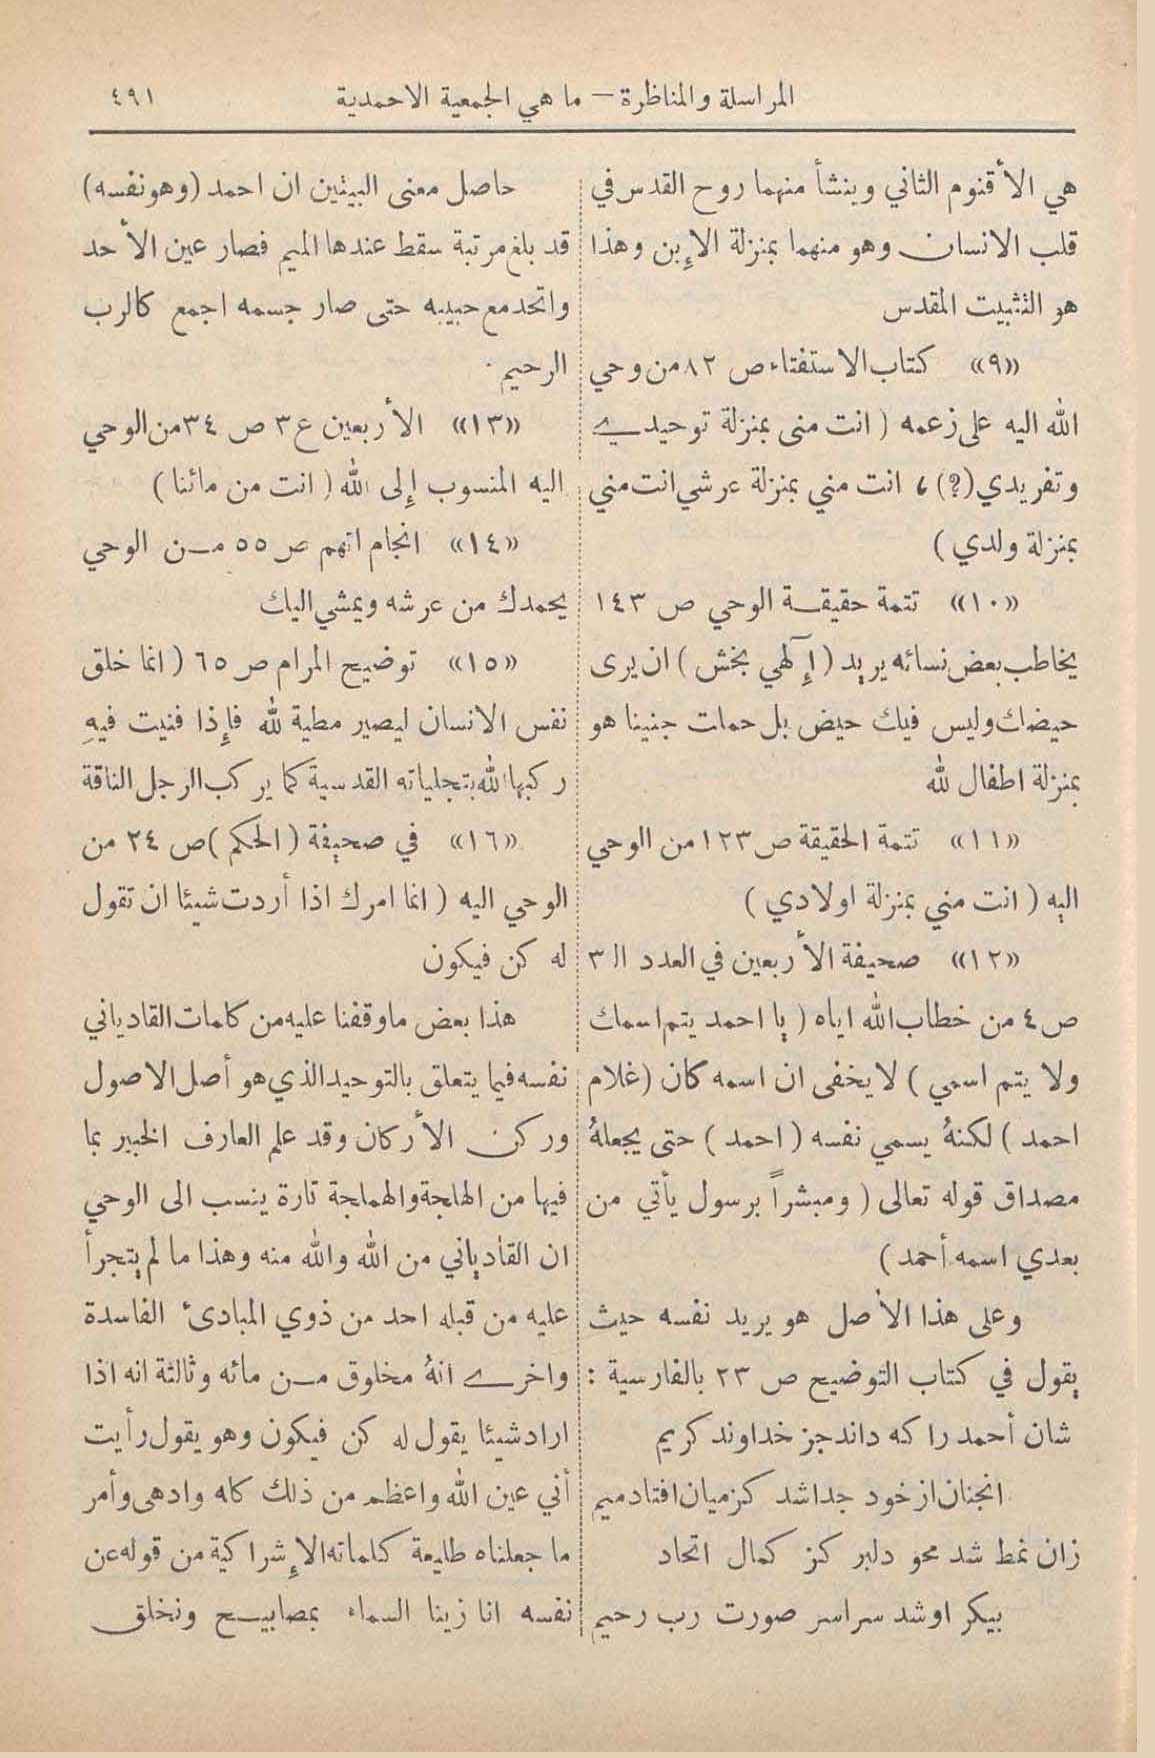 المراسلة والمناظرة — ما هي الجمعية الاحمدية ٤٩١
هي الأقنوم الثاني وينشأ منهما روح القدس في
قلب الانسان وهو منهما بمنزلة الإبن وهذا
هو التثبيت المقدس
«٩» كتاب الاستفتاء ص ٨٢ من وحي
الله اليه على زعمه ( انت منى بمنزلة توحيدي
وتفريدي (?) ، انت مني بمنزلة عرشي انت مني
بمنزلة ولدي )
«١٠» تتمة حقيقة الوحي ص ١٤٣
يخاطب بعض نسائه يريد ( إلهي بخش ) ان يرى
حيضك وليس فيك حيض بل حملت جنينا هو
بمنزلة اطفال لله
«١١» تتمة الحقيقة ص ١٢٣ من الوحي
اليه ( انت مني بمنزلة اولادي )
«١٢» صحيفة الأربعين في العدد الـ ٣
ص ٤ من خطاب الله اياه ( يا احمد يتم اسمك
ولا يتم اسمي ) لا يخفى ان اسمه كان ( غلام
احمد ) لكنهُ يسمي نفسه ( احمد ) حتى يجعلهُ
مصداق قوله تعالى ( ومبشراً برسول يأتي من
بعدي اسمه أحمد )
وعلى هذا الأصل هو يريد نفسه حيث
يقول في كتاب التوضيح ص ٢٣ بالفارسية :
شان أحمد را كه داند جز خداوند كريم
انجنان از خود جدا شد كز ميان افتاد ميم
زان نمط شد محو دلبر كز كمال اتحاد
بيكر او شد سراسر صورت رب رحيم
حاصل معنى البيتين ان احمد ( وهو نفسه )
قد بلغ مرتبة سقط عندها الميم فصار عين الأحد
واتحد مع حبيبه حتى صار جسمه اجمع كالرب
الرحيم .
«١٣» الأربعين ع ٣ ص ٣٤ من الوحي
اليه المنسوب إلى الله ( انت من مائنا )
«١٤» انجام آتهم ص ٥٥ من الوحي
يحمدك من عرشه ويمشي اليك
«١٥» توضيح المرام ص ٦٥ ( انما خلق
نفس الانسان ليصير مطية لله فإذا فنيت فيهِ
ركبها الله بتجلياته القدسية كما يركب الرجل الناقة
«١٦» في صحيفة ( الحكم ) ص ٢٤ من
الوحي اليه ( انما امرك اذا أردت شيئا ان تقول
له كن فيكون
هذا بعض ما وقفنا عليه من كلمات القادياني
نفسه فيما يتعلق بالتوحيد الذي هو أصل الاصول
وركن الأركان وقد علم العارف الخبير بما
فيها من الهاجة والهماجة تارة ينسب الى الوحي
ان القادياني من الله والله منه وهذا ما لم يتجرأ
عليه من قبله احد من ذوي المبادئ الفاسدة
واخرى انهُ مخلوق من مائه وثالثة انه اذا
اراد شيئا يقول له كن فيكون وهو يقول رأيت
أني عين الله واعظم من ذلك كله وادهى وأمر
ما جعلناه طليعة كلماته الإشراكية من قوله عن
نفسه انا زينا السماء بمصابيح ونخلق